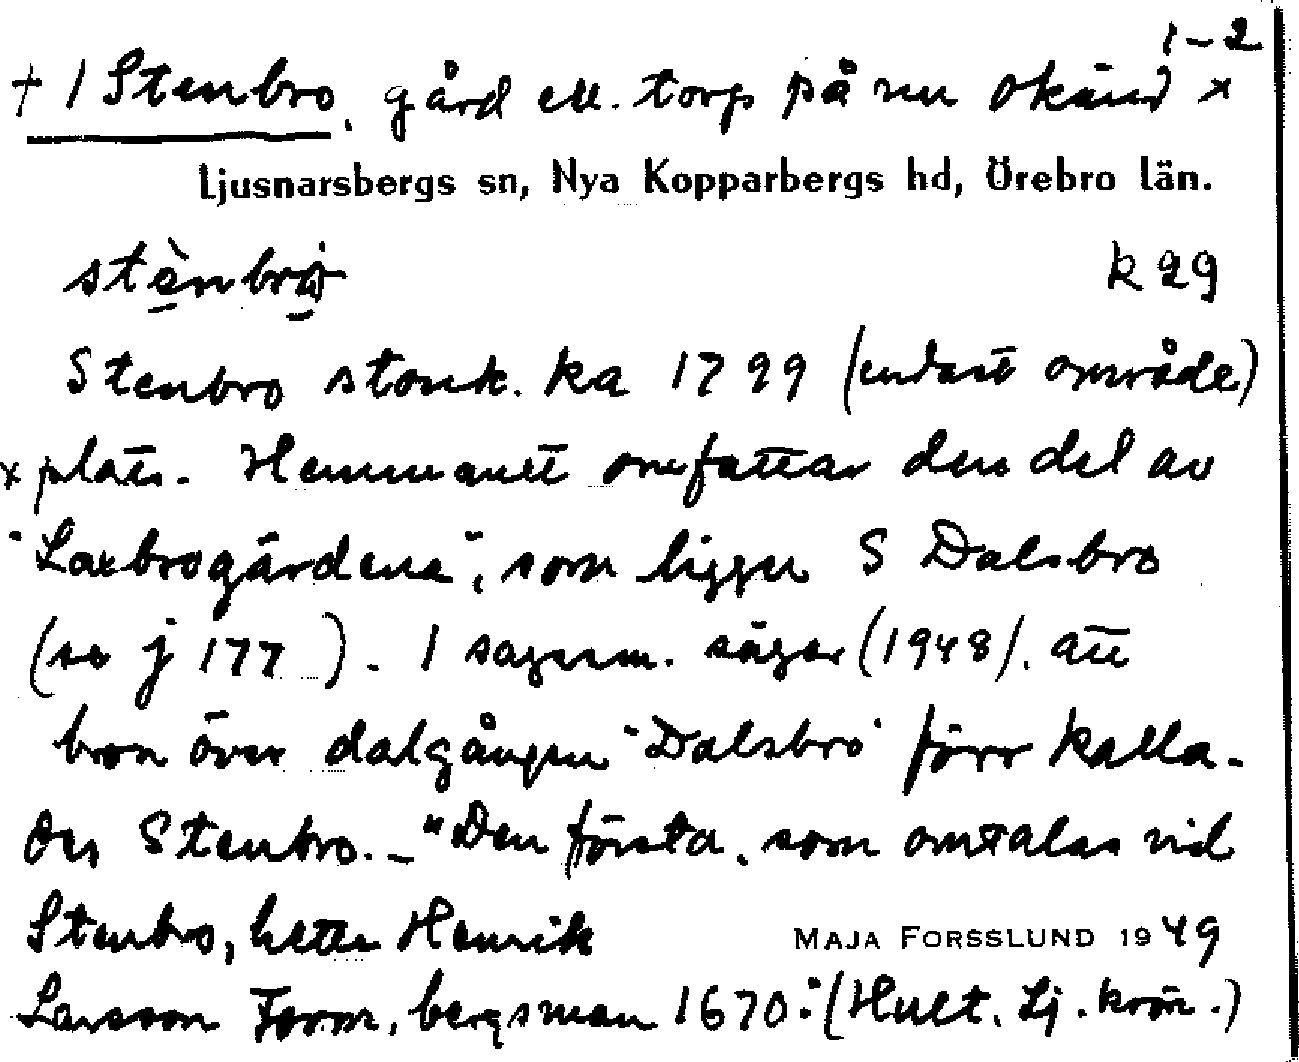 1-2
+ 1 Stenbro, gård ell. torp på nu okänd x
Ljusnarsbergs sn, Nya Kopparbergs hd, Örebro län.
stènbrò k 29
Stenbro storsk. ka 1799 (endast område)
x plats. Hemmanet omfattar den del av
"Laxbrogårdena", som ligger S Dalsbro
(se j 177). 1 sagesm. säger (1948), att
bron över dalgången "Dalsbro" förr kalla-
des Stenbro. - "Den första, som omtalas vid
Stenbro, hette Henrik MAJA FORSSLUND 1949
Larsson Form, bergsman 1670." (Hult. Lj. krön.)